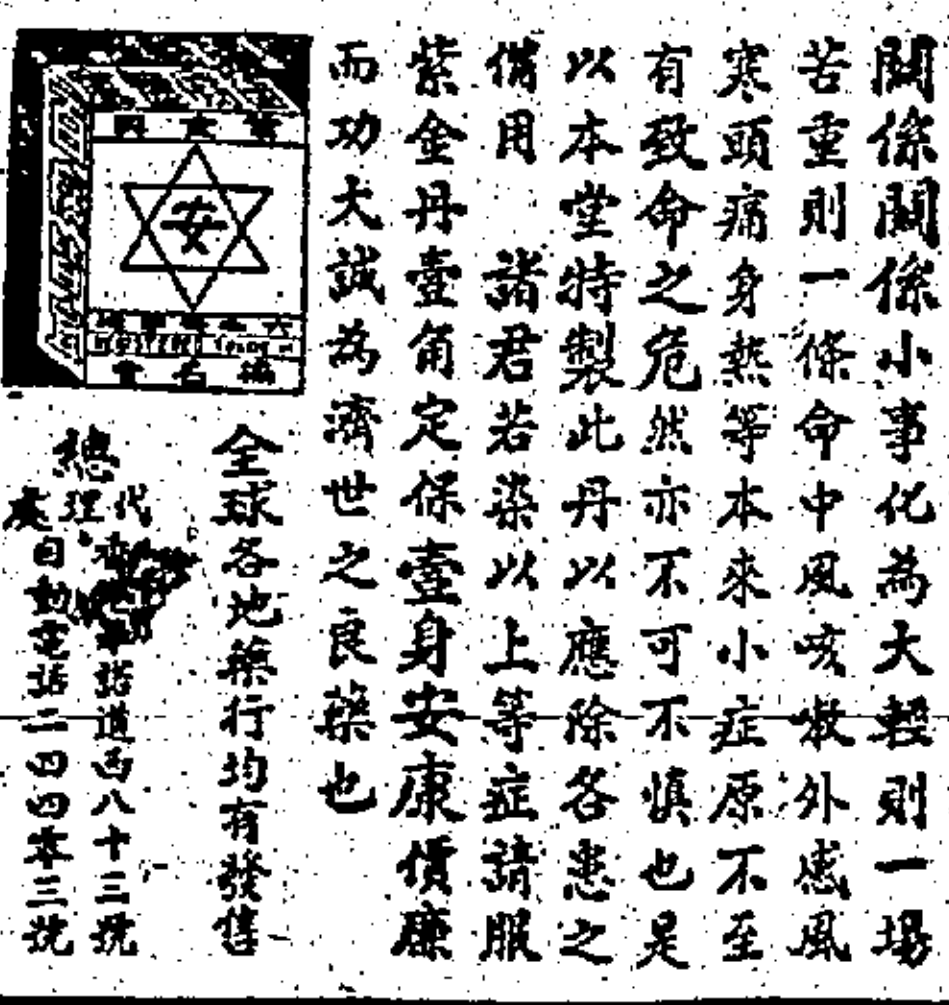 關係關係小事化為大輕則一場
苦重則一條命中風咳嗽外感風
寒頭痛身熱等本來小症原不至
有致命之危然亦不可不慎也是
以本堂特製此丹以應除各患之
備用 諸君若染以上等症請服
紫金丹壹角定保壹身安康價廉
而功大誠為濟世之良藥也
安
全球各地藥行均有發售
總代理處
道西八十三號
自動電話二四四零三號